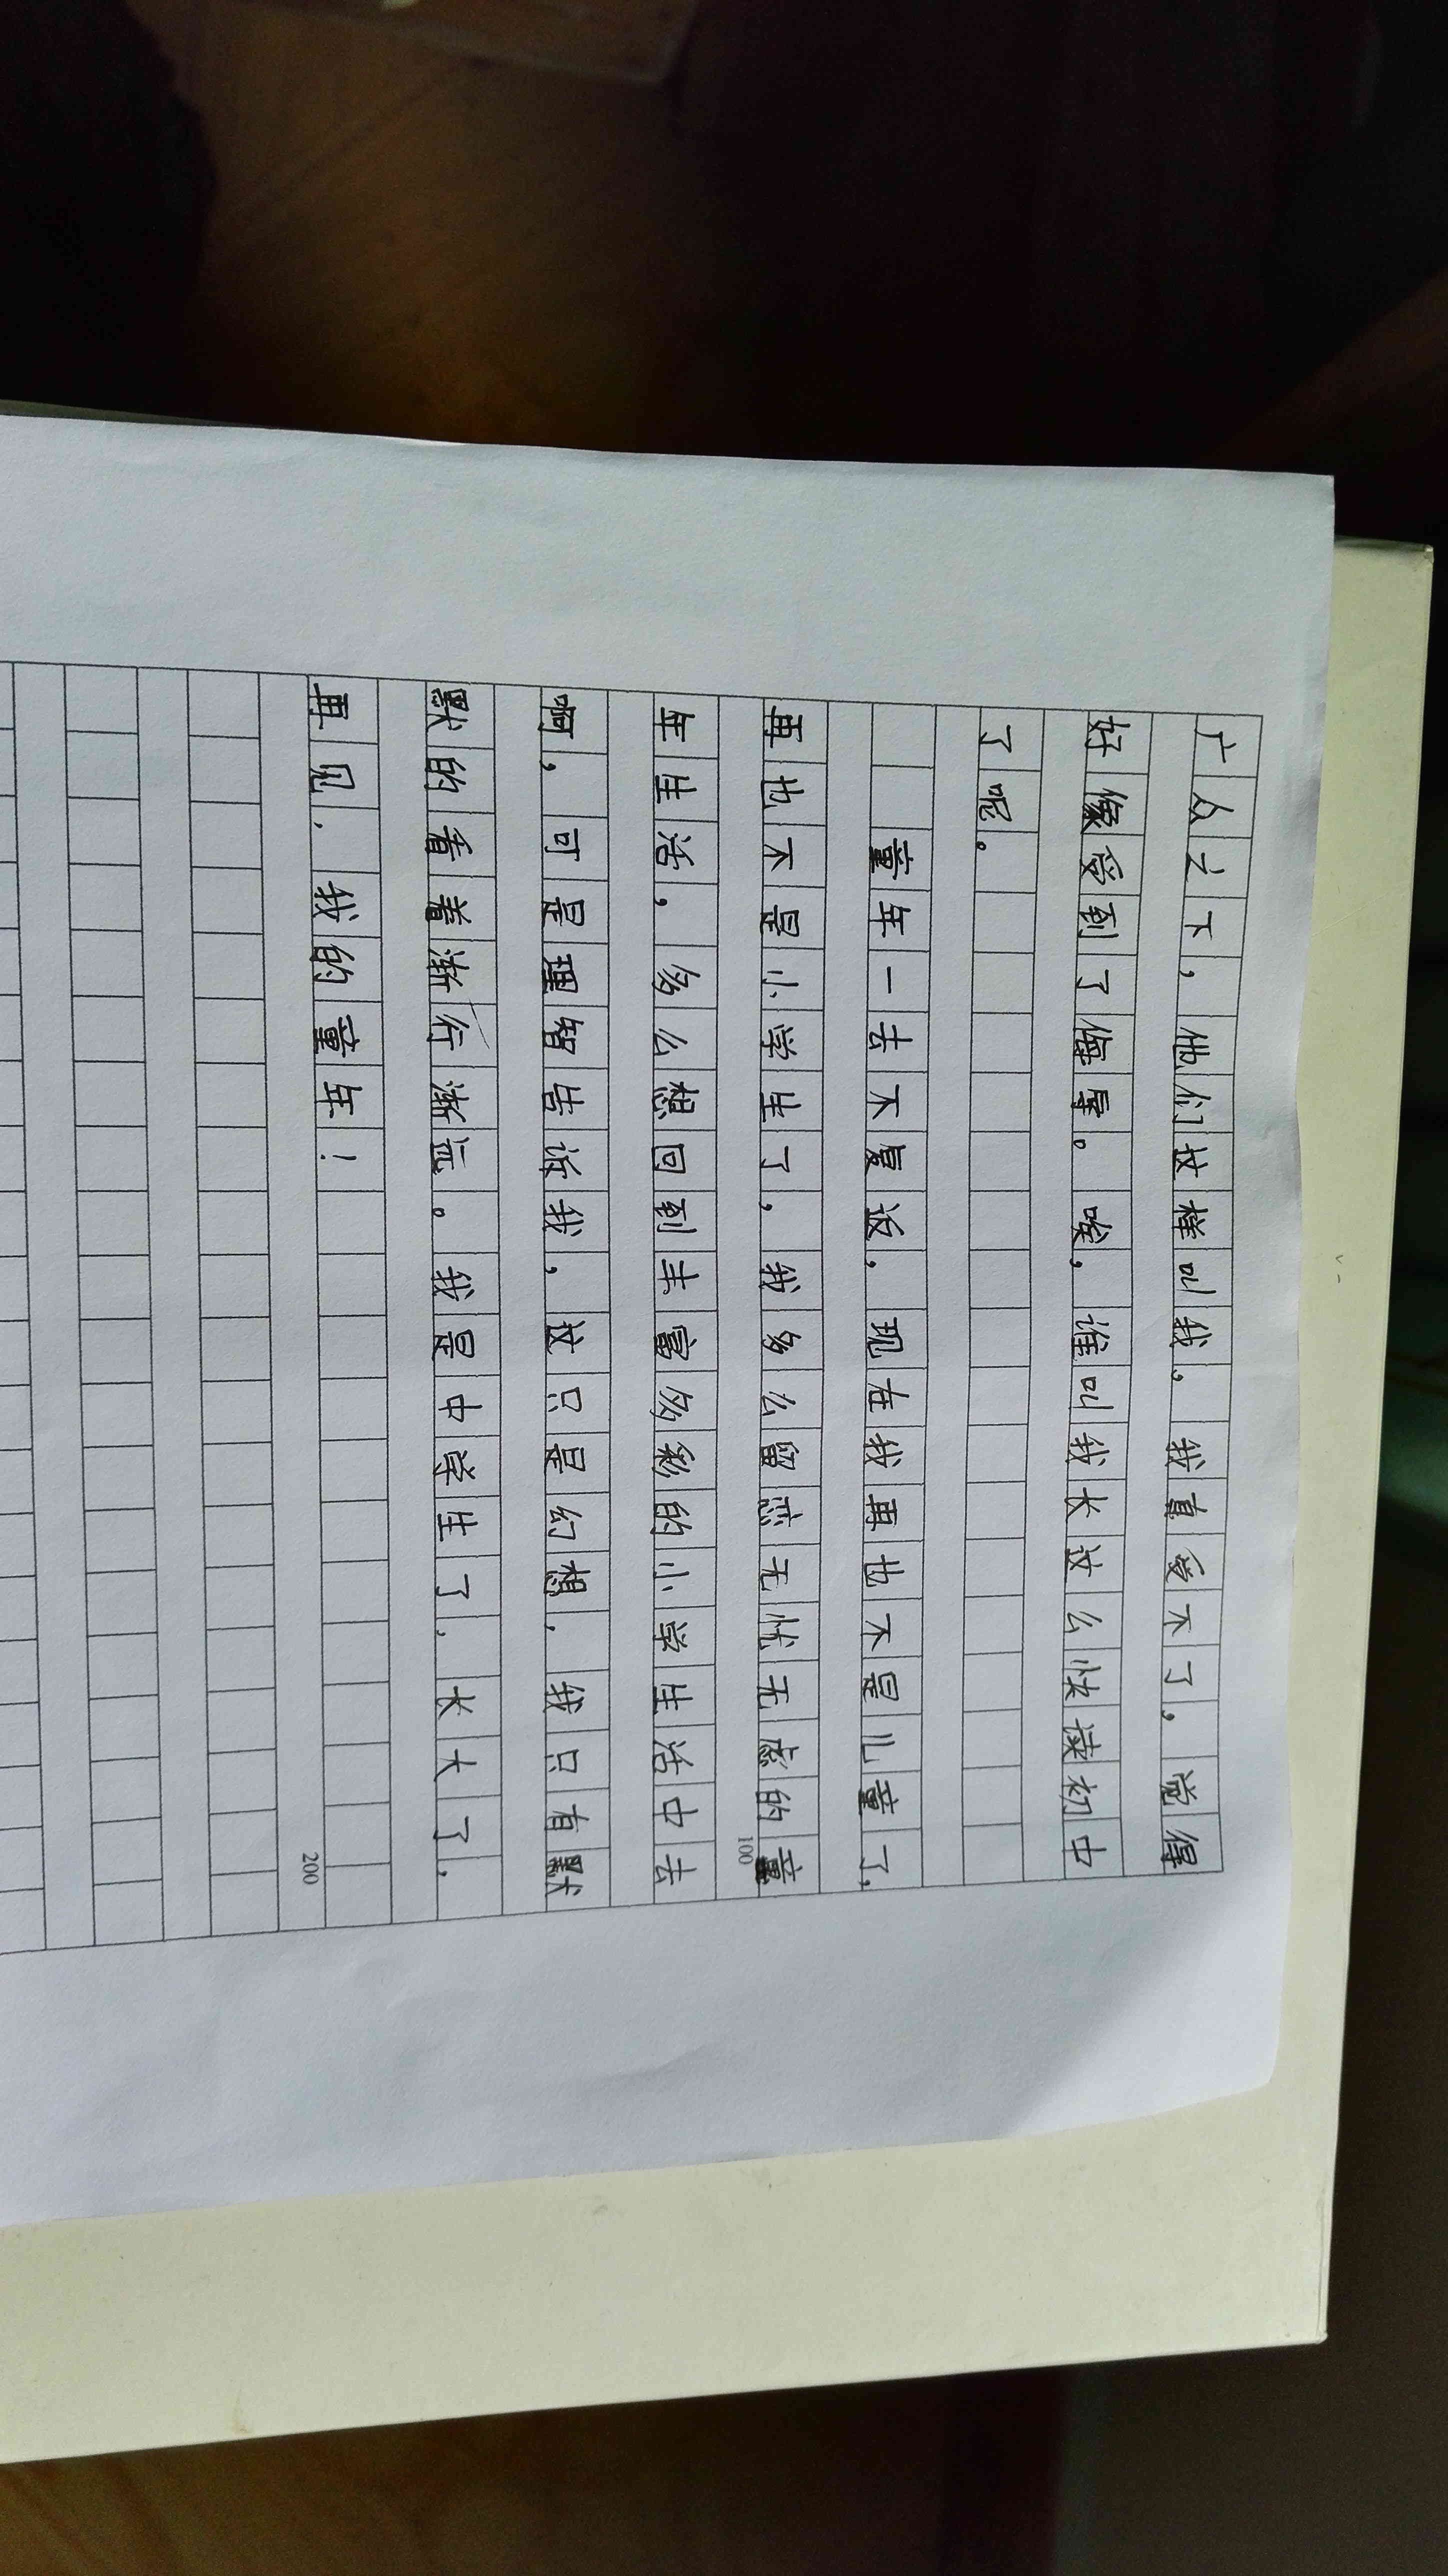 广众之下，他们这样叫我。我真受不了，觉得
好像受到了侮辱。唉，谁叫我长这么快读初中
了呢。
童年一去不复返，现在我再也不是儿童了，
再也不是小学生了，我多么留恋无忧无虑的童
100
年生活，多么想回到丰富多彩的小学生活中去
啊，可是理智告诉我，这只是幻想，我只有默
默的看着渐行渐远。我是中学生了，长大了，
再见，我的童年！
200